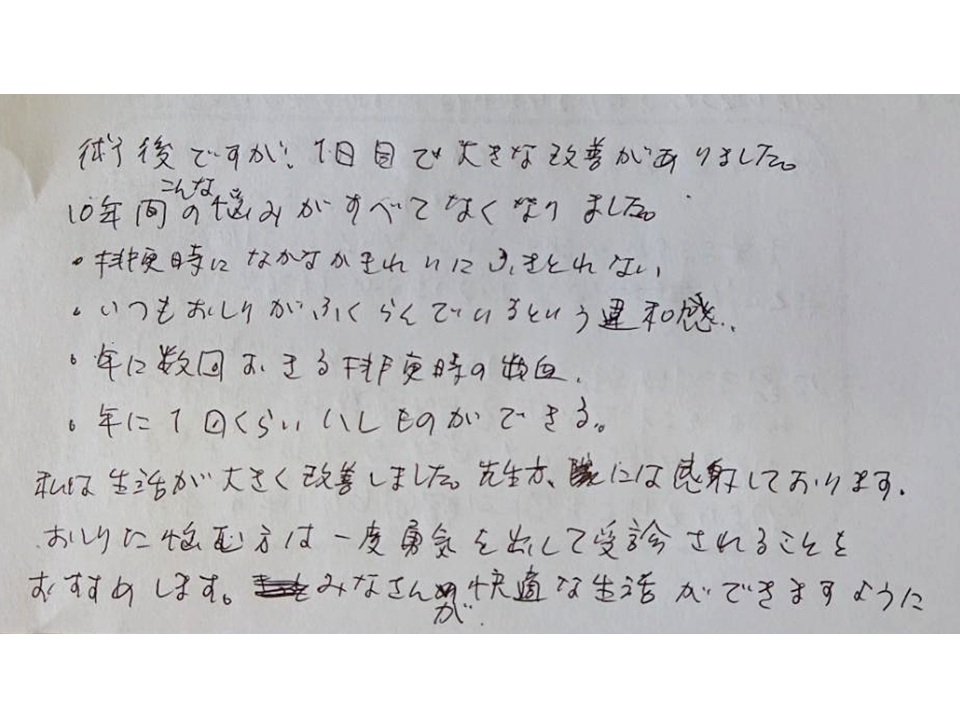 術後ですが、1日目で大きな改善がありました。
10年間のこんな悩みがすべてなくなりました。
・排便時になかなかきれいにふきとれない、
・いつもおしりがふくらんでいるという違和感、
・年に数回おきる排便時の出血、
・年に1回くらいはしものができる。
私は生活が大きく改善しました。先生方、には感謝しております。
おしりに悩む方は一度勇気を出して受診されることを
おすすめします。みなさんが快適な生活ができますように